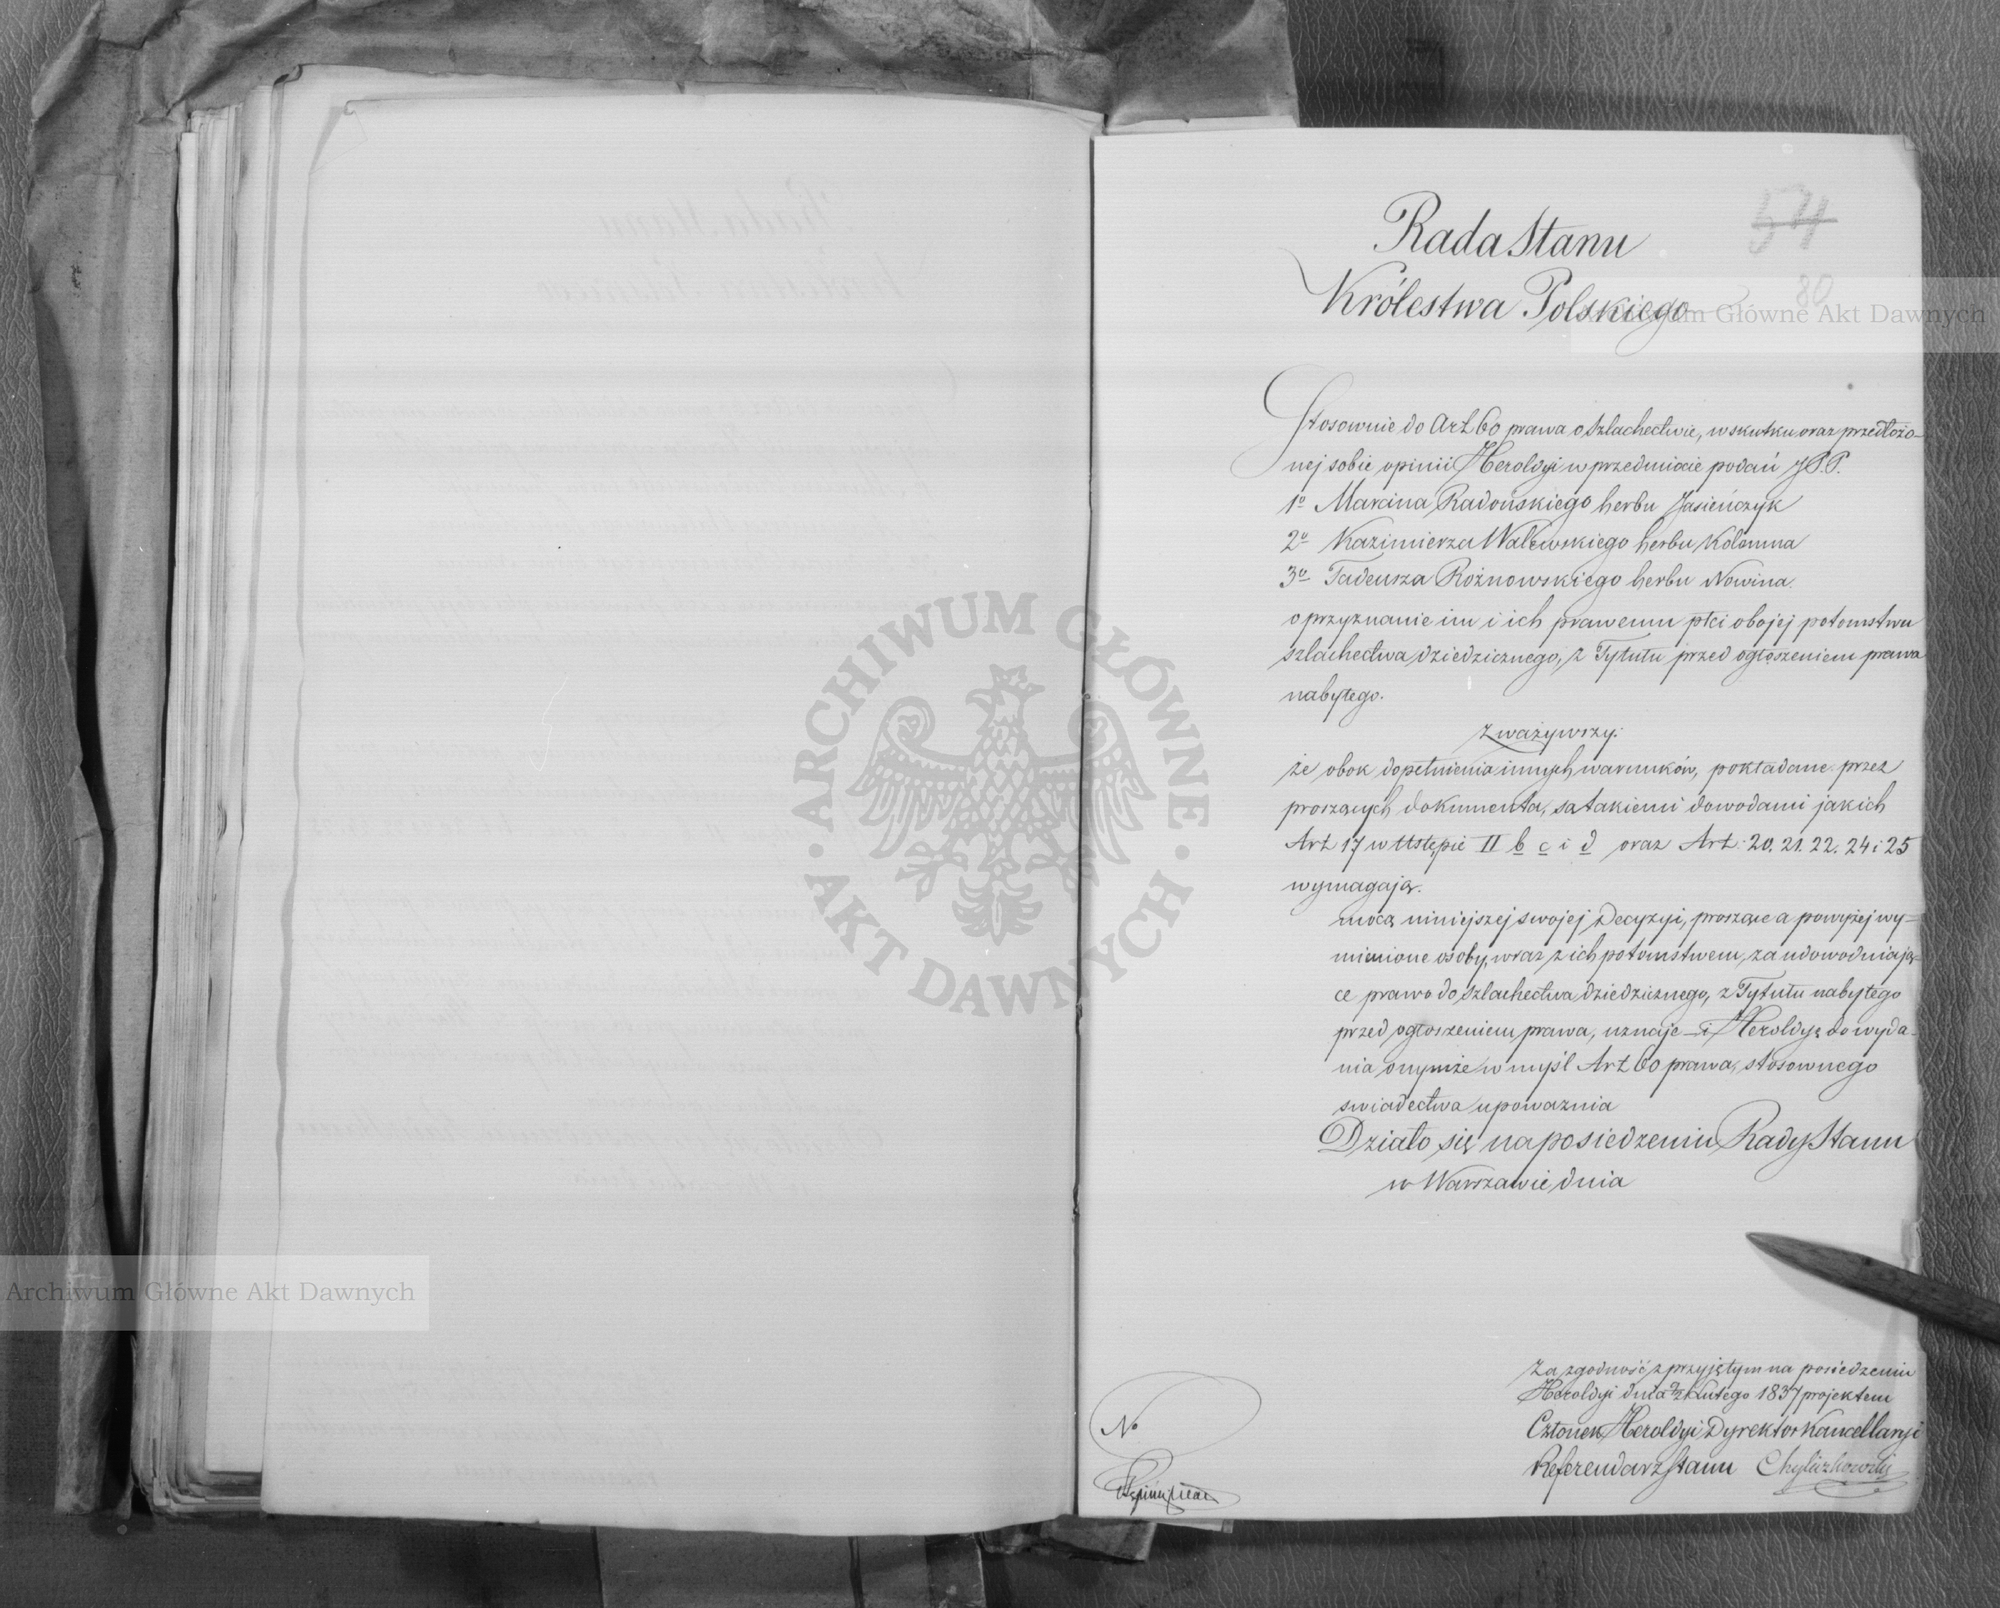 54
80
Rada Stanu
Królestwa Polskiego
Stosownie do Art 60 prawa o Szlachectwie, w skutku oraz przedłożo-
nej sobie opinii Heroldyi w przedmiocie podań J.P.P.
1º Marcina Radońskiego herbu Jasieńczyk
2º Kazimierza Walewskiego herbu Kolumna
3º Tadeusza Rożnowskiego herbu Nowina.
o przyznanie im i ich prawemu płci obojej potomstwu
szlachectwa dziedzicznego, z Tytułu przed ogłoszeniem prawa
nabytego.
Zważywszy:
że obok dopełnienia innych warunków, pokładane przez
proszących dokumenta, są takiemi dowodami jakich
Art 17 w Ustępie II b c i d oraz Art: 20. 21. 22. 24 i 25
wymagają.
mocą niniejszej swojej Decyzyi, proszące a powyżej wy-
mienione osoby, wraz z ich potomstwem, za udowodniają-
ce prawo do szlachectwa dziedzicznego, z Tytułu nabytego
przed ogłoszeniem prawa, uznaje – i Heroldyą do wyda-
nia onymże w myśl Art 60 prawa, stosownego
swiadectwa upoważnia
Działo się na posiedzeniu Rady Stanu
w Warszawie dnia
Za zgodność z przyjętym na posiedzeniu
Heroldyi dnia Lutego 1837 projektem
Członek Heroldyi Dyrektor Kancellaryi
Referendarz Stanu Chyliczkowski
No
Archiwum Główne Akt Dawnych
Archiwum Główne Akt Dawnych
ARCHIWUM GŁÓWNE
AKT DAWNYCH